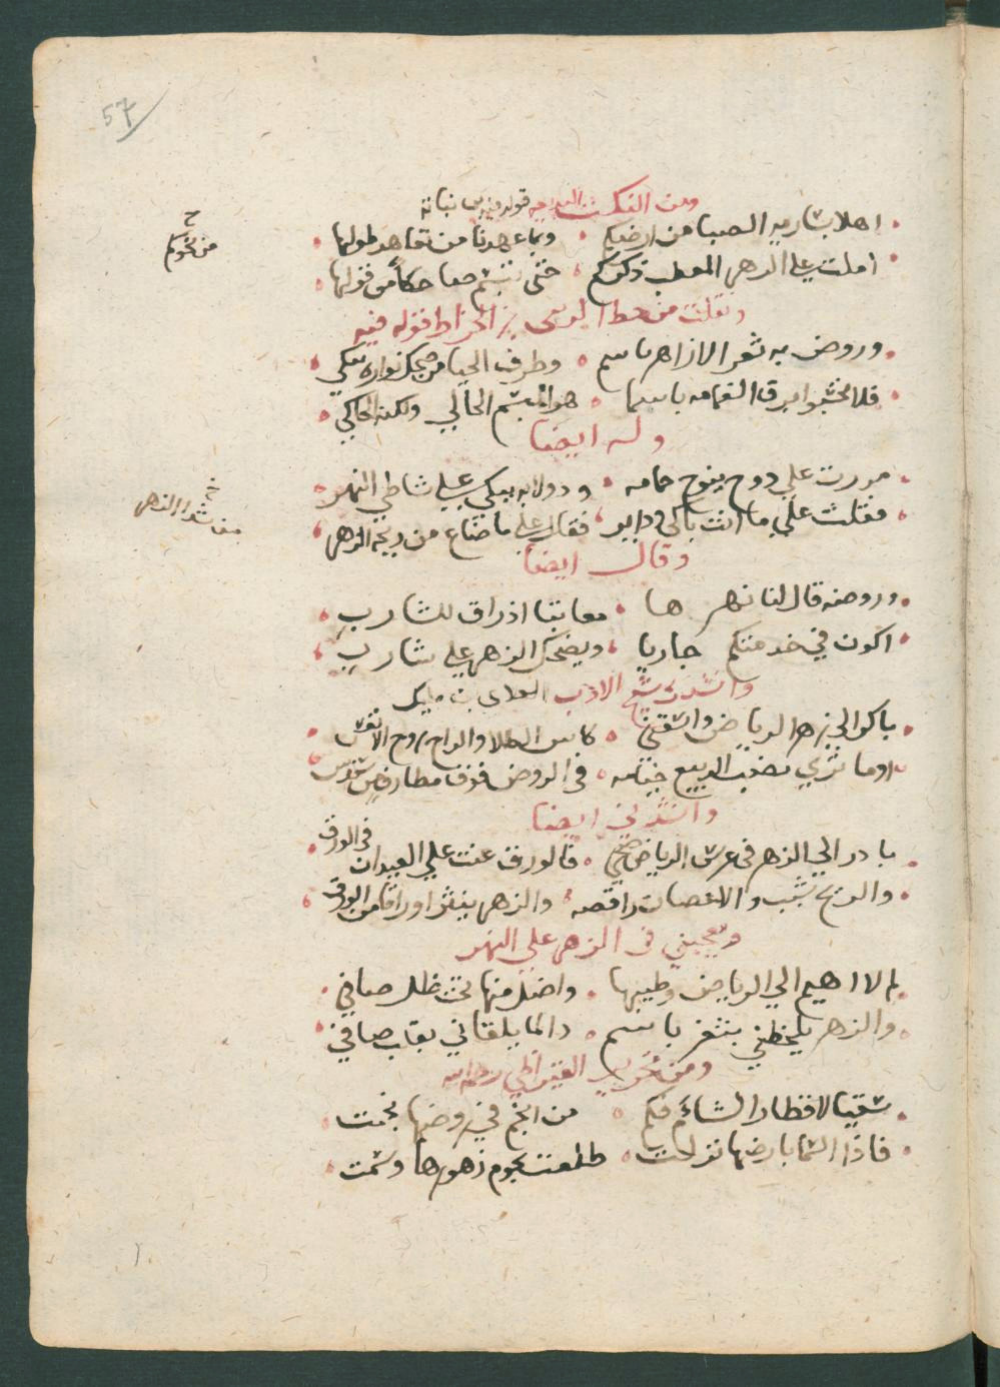 57
ومن النكت البديعة قوله فيه بن نباتة
اهلا بسارية الصبا من ارضكم • وبما عهدنا من تعاهد طولها
ح
من نحوكم
املت على الزهر المعطر ذكركم • حتى تبسم ضاحكا من قولها
ونقلت من خط الخراط قوله فيه
وروض به ثغر الازاهر باسم • وطرف الحيا من ضحك نواره يبكي
فلا تحسبوا برق الغمامه باسما • هو المبسم الحالي ولكنه الحاكي
وله ايضا
مررت على دوح ينوح حمامه • ودولابه يبكي على شاطي النهر
فقلت على ما انت باكي دايم فقال على ما ضاع من ريحه الزهر
خ
الزهر
وقال ايضا
وروضة قال لنا نهرها • معاتبا اذ راق للشارب
اكون في خدمتكم جاريا • ويضحك الزهر على شارب
وانشدني شيخ الادب العلاي بن مليك
باكر الى زهر الرياض واسقني • كاس الطلا والراح روح الانفس
اوما تري نصب الربيع خيامه • في الروض فوق مطارف سندس
وانشدني ايضا
بادر الي الزهر في عرش الرياض • فالورق غنت علي العيدان في الورق
والريح شبب والاغصان راقصة • والزهر ينثر اوراقا من الورق
ويعجبني في الزهر على النهر
لم لا اهيم الي الرياض وطيبها • واضل منها تحت ظل صافي
والزهر يلحظني بثغر باسم • والما يلقاني بقلب صافي
ومن القيراطي رحمه الله
سقيا لاقطار الشام فكم • من انجم في روضها نجمت
فاذا السما بارضها نزلت • طلعت نجوم زهورها وسمت